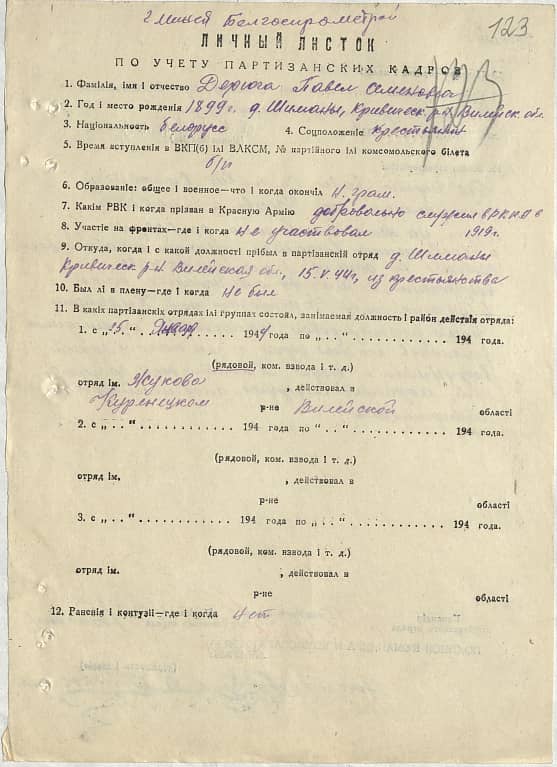 г. Минск Белгоспромстрой
123
ЛИЧНЫЙ ЛИСТОК
ПО УЧЕТУ ПАРТИЗАНСКИХ КАДРОВ
1. Фамілія, імя і отчество Дерюга Павел Семенович
2. Год і место рождения 1899 г. д. Шиманы, Кривическ. р-н Вилейск. обл.
3. Національность белорусс 4. Соцположеніе крестьянин
5. Время вступления в ВКП(б) ілі ВЛКСМ, № партійного ілі комсомольского білета
б/п
6. Образованіе: общее і военное—что і когда окончіл н. грам.
7. Какім РВК і когда прізван в Красную Армію добровольно служил в РККА в
8. Участіе на фронтах—где і когда не участвовал 1919 г.
9. Откуда, когда і с какой должності прібыл в партізанскій отряд д. Шиманы
Кривическ. р-н Вилейская обл., 15.V.44 г., из крестьянства
10. Был лі в плену—где і когда не был
11. В какіх партізанскіх отрядах ілі группах состоял, занімаемая должность і район действія отряда:
1. с „25.“ Января 1944 года по „ . . “ . . . . . . . . . . . . 194 года.
(рядовой, ком. взвода і т. д.)
отряд ім. Жукова , действовал в
Куренецком р-не Вилейской області
2. с „ . . “ . . . . . . . . . . . . 194 года по „ . . “ . . . . . . . . . . . . 194 года.
(рядовой, ком. взвода і т. д.)
отряд ім. , действовал в
р-не области
3. с „ . . “ . . . . . . . . . . . . 194 года по „ . . “ . . . . . . . . . . . . 194 года.
(рядовой, ком. взвода і т. д.)
отряд ім. , действовал в
р-не області
12. Раненія і контузіі—где і когда нет